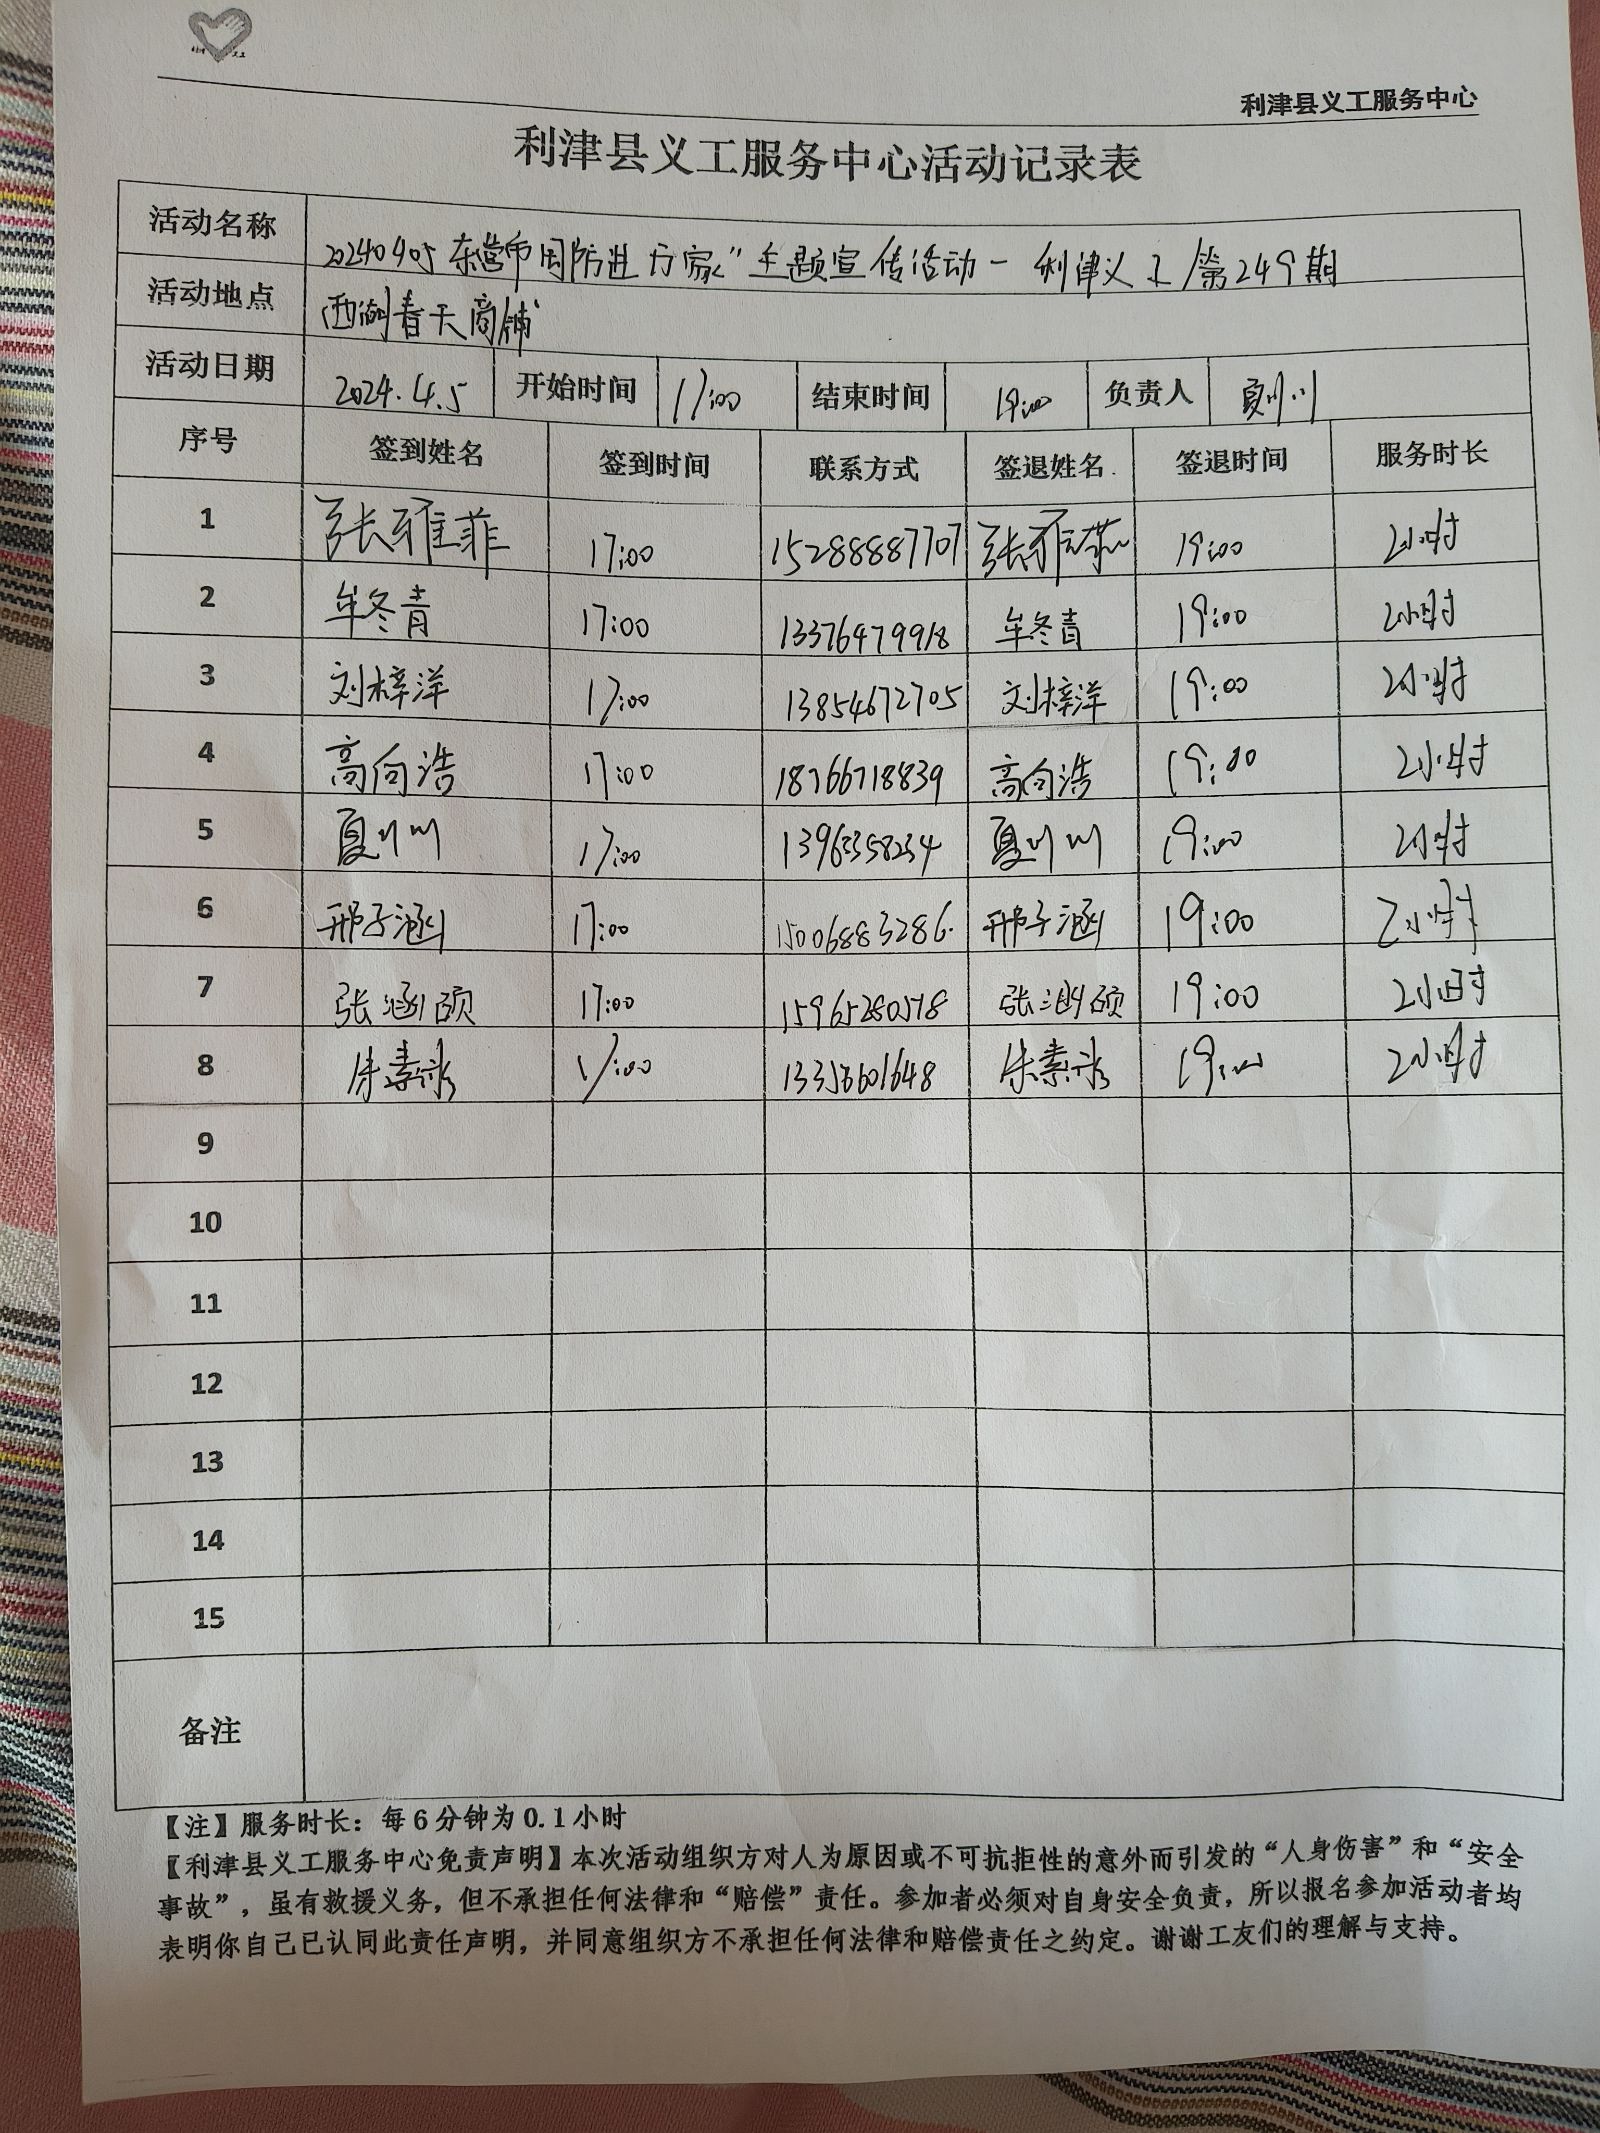 利津县义工服务中心
利津县义工服务中心活动记录表
活动名称 20240405东营市国防进万家"主题宣传活动-利津义工/第249期
活动地点 西湖春天商铺
活动日期 2024.4.5 开始时间 17:00 结束时间 19:00 负责人 夏川川
序号 签到姓名 签到时间 联系方式 签退姓名 签退时间 服务时长
1 张雅菲 17:00 15288887707 张雅菲 19:00 2小时
2 牟冬青 17:00 13376479918 牟冬青 19:00 2小时
3 刘梓洋 17:00 13854672705 刘梓洋 19:00 2小时
4 高向浩 17:00 18766718839 高向浩 19:00 2小时
5 夏川川 17:00 夏川川 19:00 2小时
6 邢子涵 17:00 15006883286. 邢子涵 19:00 2小时
7 张涵硕 17:00 15965280578 张涵硕 19:00 2小时
8 17:00 13356601648 19:00 2小时
9
10
11
12
13
14
15
备注
【注】服务时长：每6分钟为0.1小时
【利津县义工服务中心免责声明】本次活动组织方对人为原因或不可抗拒性的意外而引发的“人身伤害”和“安全
事故”，虽有救援义务，但不承担任何法律和“赔偿”责任。参加者必须对自身安全负责，所以报名参加活动者均
表明你自己已认同此责任声明，并同意组织方不承担任何法律和赔偿责任之约定。谢谢工友们的理解与支持。